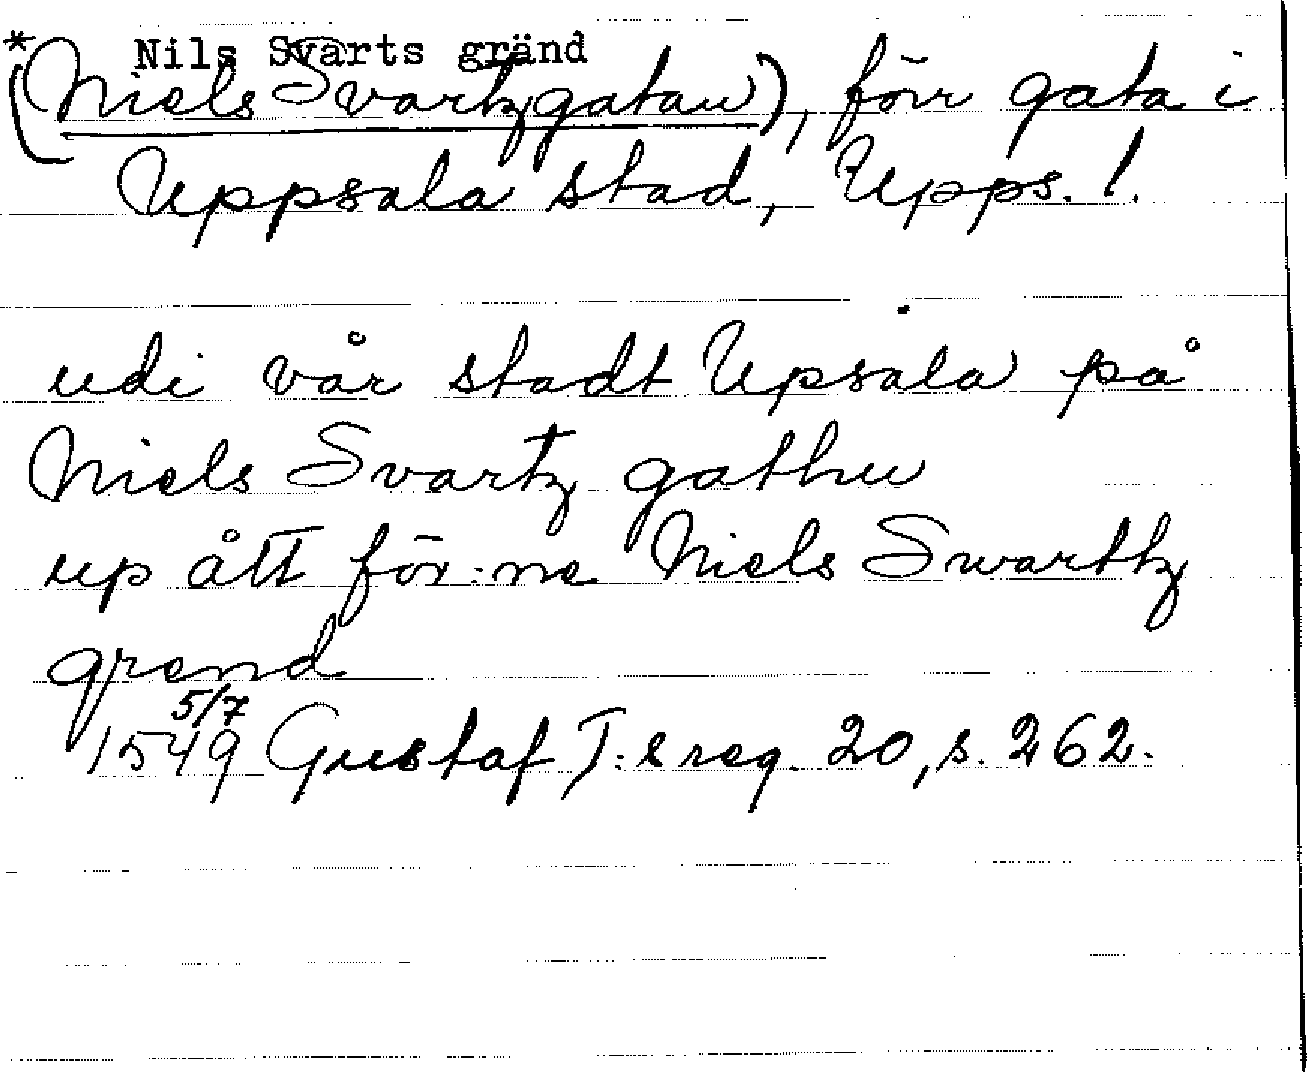 * Nils Svarts gränd
(Niels Svartzgatan), förr gata i
Uppsala stad, Upps. l.
udi vår stadt Upsala på
Niels Svartz gathu
up ått för:ne Niels Swarthz
grend
1549 5/7 Gustaf I:s reg. 20, s. 262.